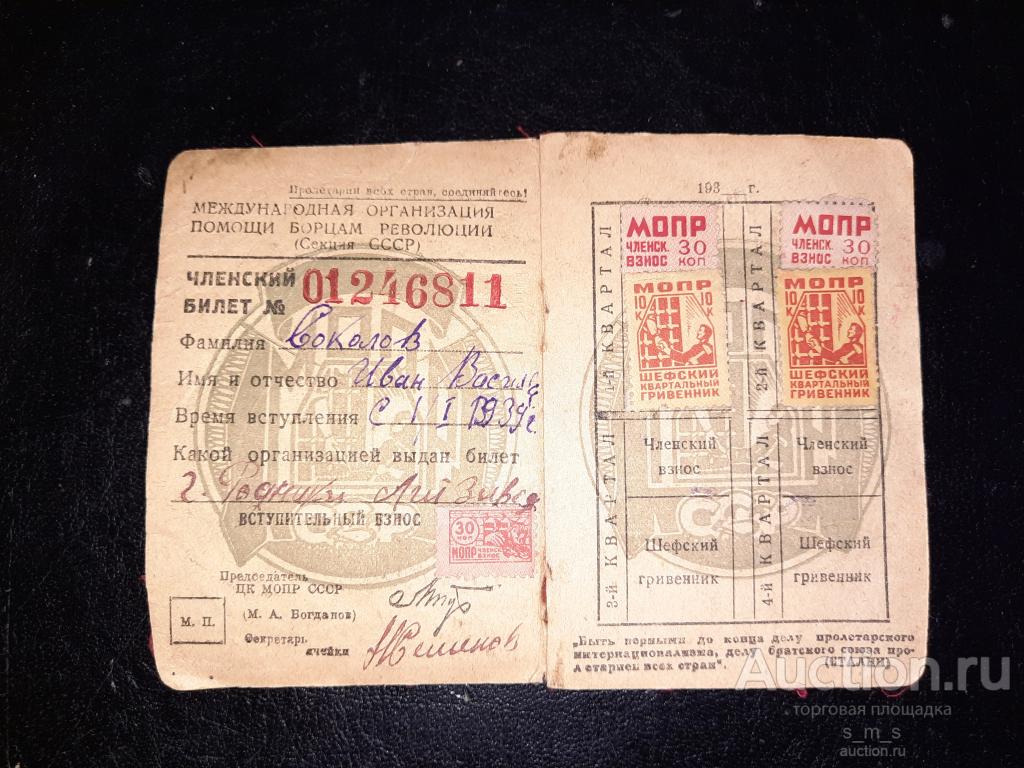 Пролетарии всех стран, соединяйтесь!
МЕЖДУНАРОДНАЯ ОРГАНИЗАЦИЯ
ПОМОЩИ БОРЦАМ РЕВОЛЮЦИИ
(Секция СССР)
ЧЛЕНСКИЙ
БИЛЕТ № 01246811
Фамилия Соколов
Имя и отчество Иван Василь
Время вступления с 1 I 1939г.
Какой организацией выдан билет
г. Родники
ВСТУПИТЕЛЬНЫЙ ВЗНОС
30 КОП
МОПР ЧЛЕНСК. ВЗНОС
Председатель
ЦК МОПР СССР
(М. А. Богданов)
М. П.
Секретарь
ячейки
СССР
193 г.
1-й КВАРТАЛ
МОПР
ЧЛЕНСК. 30
ВЗНОС КОП
МОПР
10 К 10 К
ШЕФСКИЙ
КВАРТАЛЬНЫЙ
ГРИВЕННИК
2-й КВАРТАЛ
МОПР
ЧЛЕНСК. 30
ВЗНОС КОП.
МОПР
10 К 10 К
ШЕФСКИЙ
КВАРТАЛЬНЫЙ
ГРИВЕННИК
3-й КВАРТАЛ
Членский
взнос
Шефский
гривенник
4-й КВАРТАЛ
Членский
взнос
Шефский
гривенник
СССР
„Быть верными до конца делу пролетарского
интернационализма, делу братского союза про-
летариев всех стран".
(СТАЛИН)
Auction.ru
торговая площадка
s_m_s
auction.ru